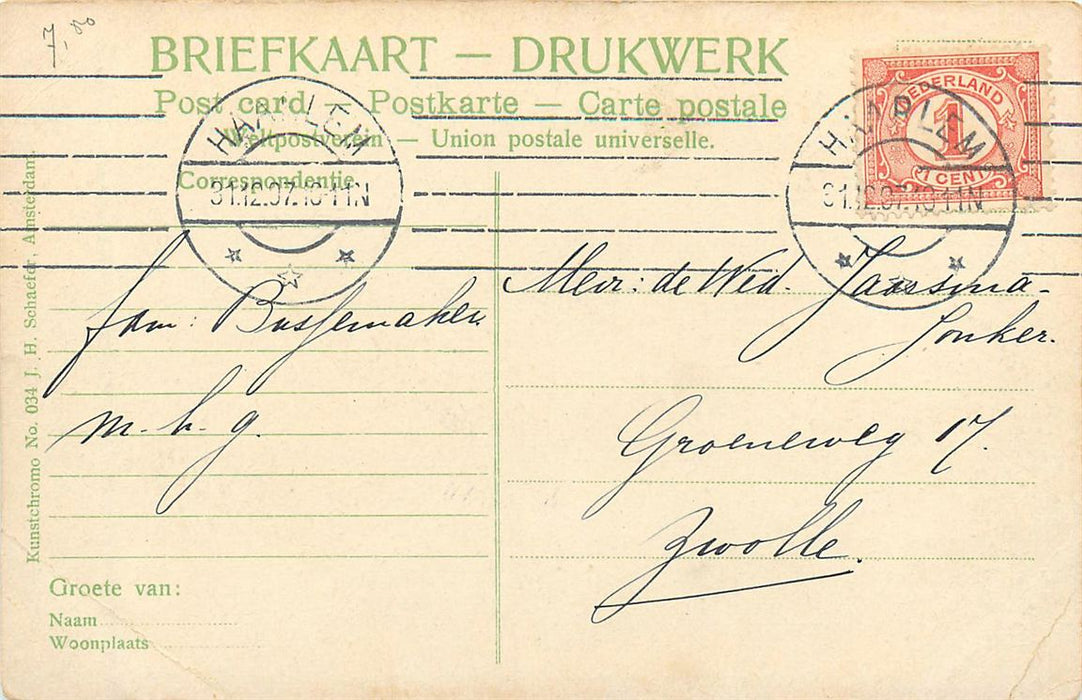 7,00
BRIEFKAART — DRUKWERK
Post card — Postkarte — Carte postale
Weltpostverein — Union postale universelle.
Correspondentie
HAARLEM
31.12.07.10-11N
NEDERLAND
1
1 CENT
HAARLEM
31.12.07.10-11N
fam: Bussemaker
m. h. g.
Mevr: de Wed. Janssma-
Jonker.
Groeneweg 17.
Zwolle.
Groete van:
Naam
Woonplaats
Kunstchromo No. 034 J. H. Schaefer, Amsterdam.